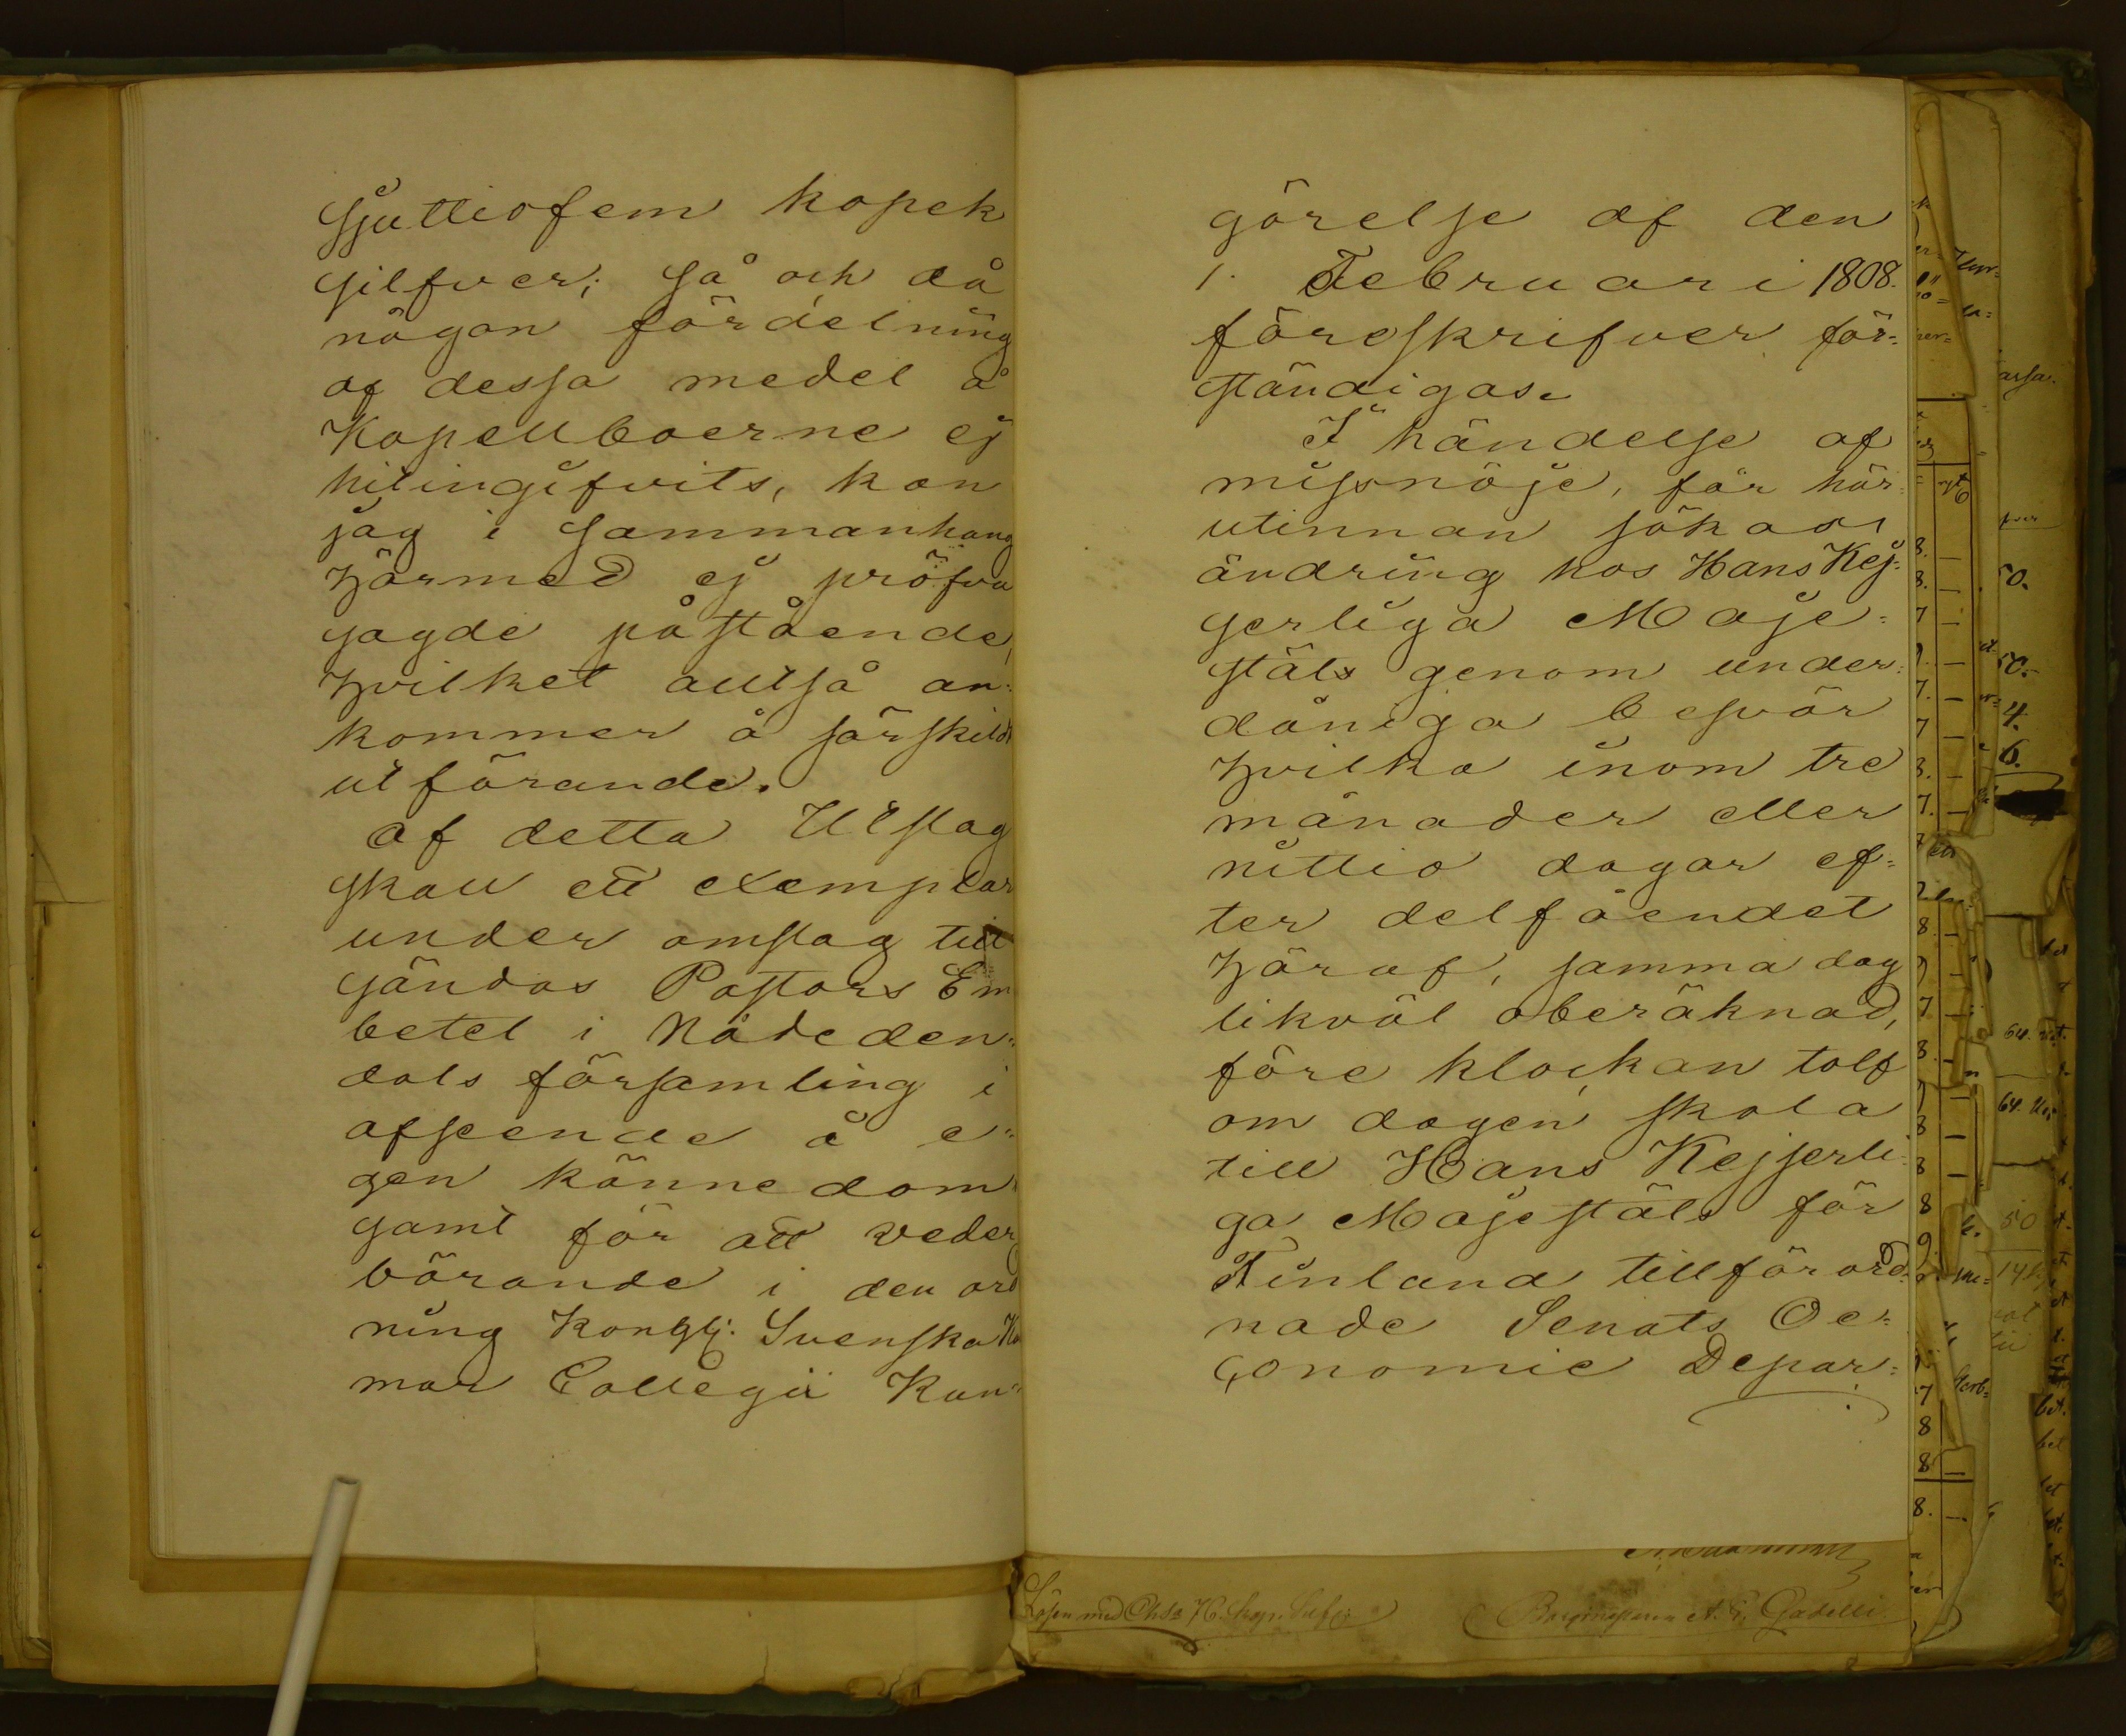 sjuttiofem kopek
silfver; så och då
någon fördelning
af dessa medel å
Kapellboerne ej
hitingifvits, kan
jag i sammanhang
härmed ej pröfva
sagde påstående,
hvilket alltså an-
kommer å särskildt
utförande.
Af detta Utslag
skall ett exemplar
under omslag till
sändas Pastors Em
betet i Nådeden-
dals församling i
afseende å e-
gen kännedom
samt för att veder
börande i den ord
ning Kongl: Svenska Ka
mar Collegii Kun-
görelse af den
1. Februari 1808.
föreskrifver för-
ständigas.
I händelse af
missnöje, får här-
utinnan sökas
ändring hos Hans Kej-
serliga Maje-
stäts genom under-
dåniga besvär
hvilka inom tre
månader eller
nittio dagar ef-
ter delfåendet
häraf, samma dag
likväl oberäknad,
före klockan tolf
om dagen skola
till Hans Kejserli-
ga Majestäts för
Finland tillförord-
nade Senats Oe-
conomie Depar-
Lösen med
50.
50.
4.
6.